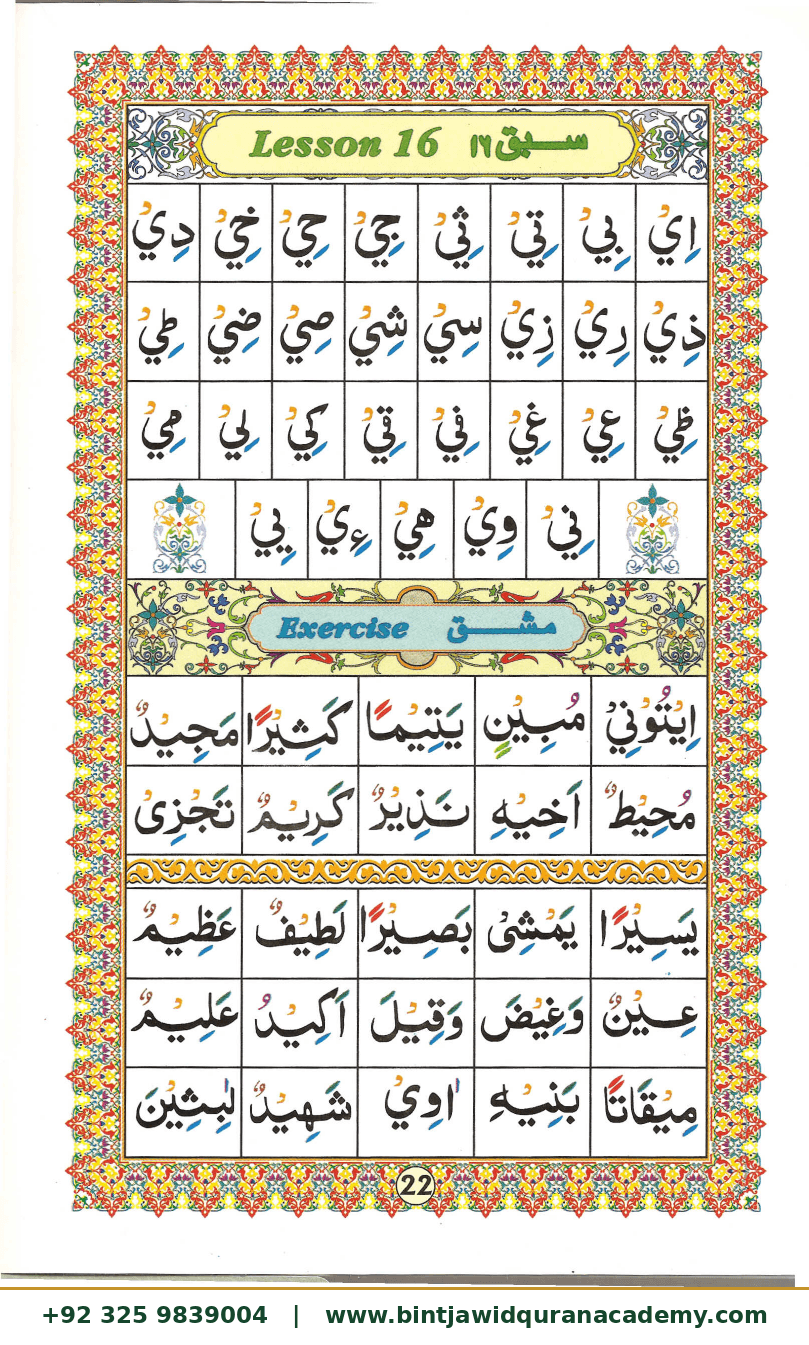 Lesson 16 سبق ١٦
اِيْ بِيْ تِيْ ثِيْ جِيْ حِيْ خِيْ دِيْ
ذِيْ رِيْ زِيْ سِيْ شِيْ صِيْ ضِيْ طِيْ
ظِيْ عِيْ غِيْ فِيْ قِيْ كِيْ لِيْ مِيْ
نِيْ وِيْ هِيْ ءِيْ يِيْ
Exercise مشق
اِيْتُوْنِيْ مُبِيْنٍ يَتِيْمًا كَثِيْرًا مَجِيْدٌ
مُحِيْطٌ اَخِيْهِ نَذِيْرٌ كَرِيْمٌ تَجْزِىْ
يَسِيْرًا يَمْشِىْ بَصِيْرًا لَطِيْفٌ عَظِيْمٌ
عِيْنٌ وَغِيْضَ وَقِيْلَ اَكِيْدُ عَلِيْمٌ
مِيْقَاتًا بَنِيْهِ اٰوِيْ شَهِيْدٌ لٰبِثِيْنَ
22
+92 325 9839004 | www.bintjawidquranacademy.com